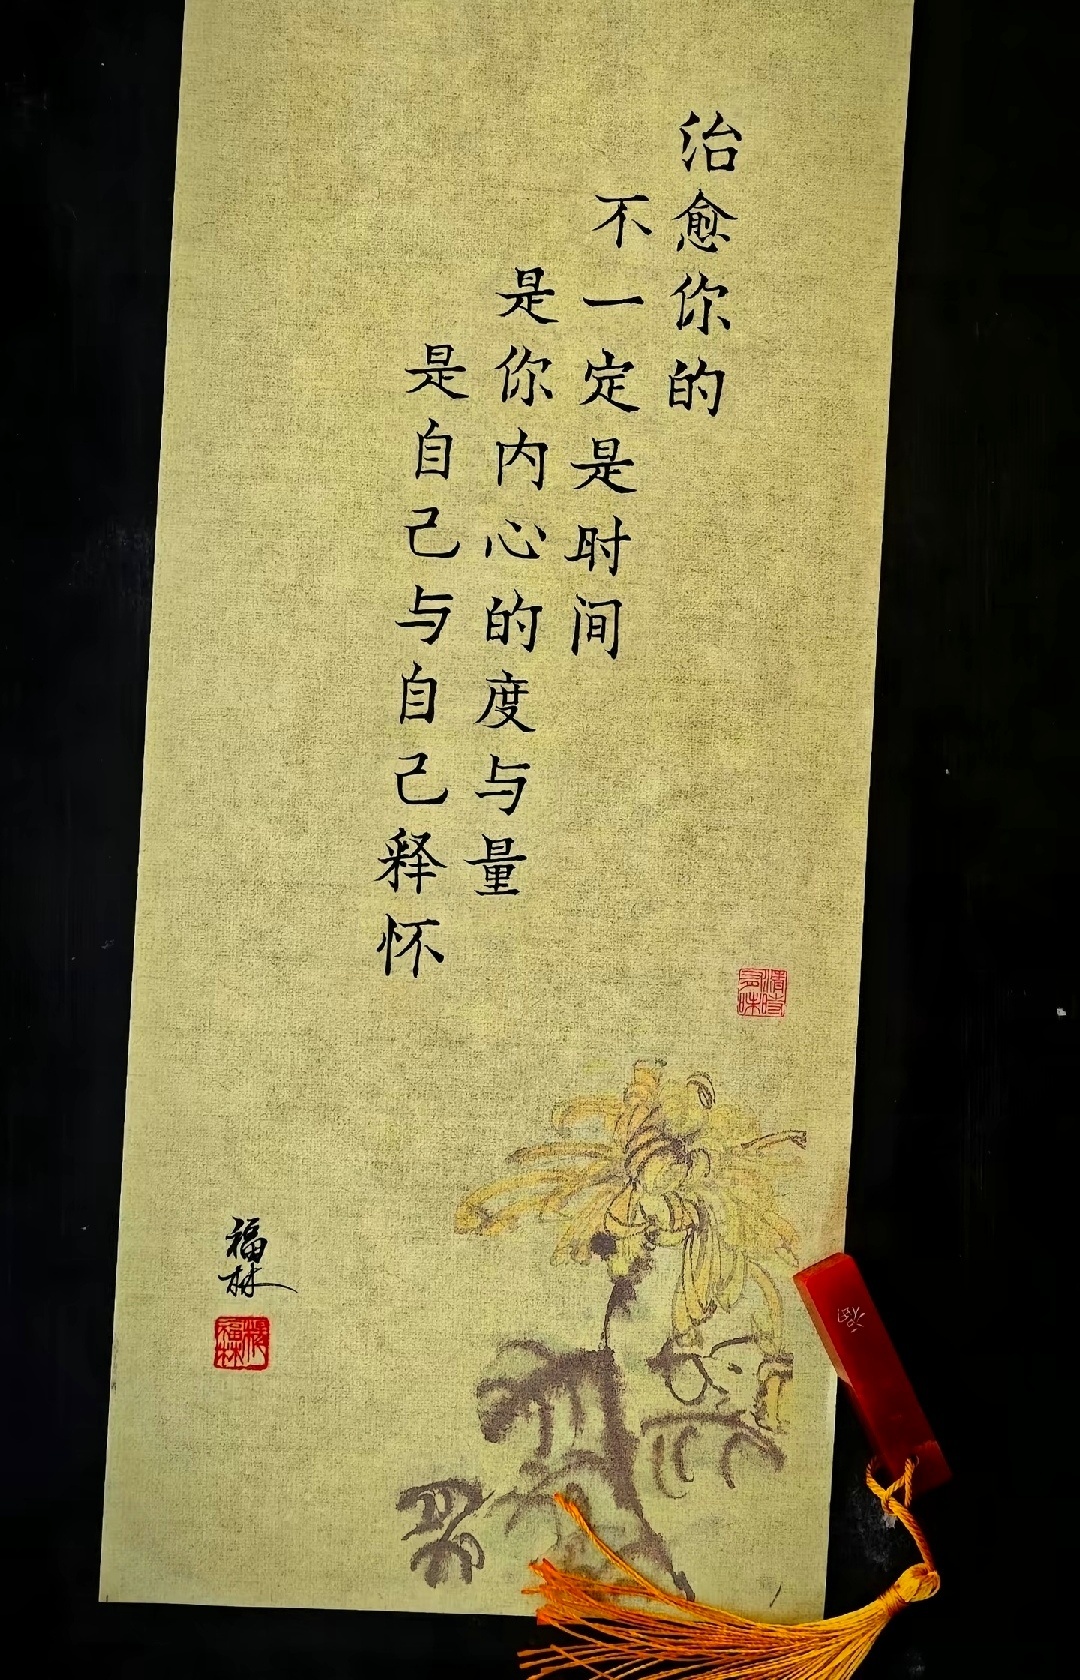 治愈你的
不一定是时间
是你内心的度与量
是自己与自己释怀
福林